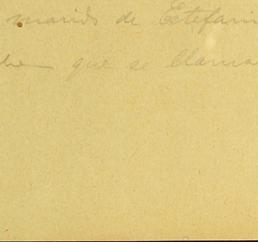 marido de Estefan
que se llama